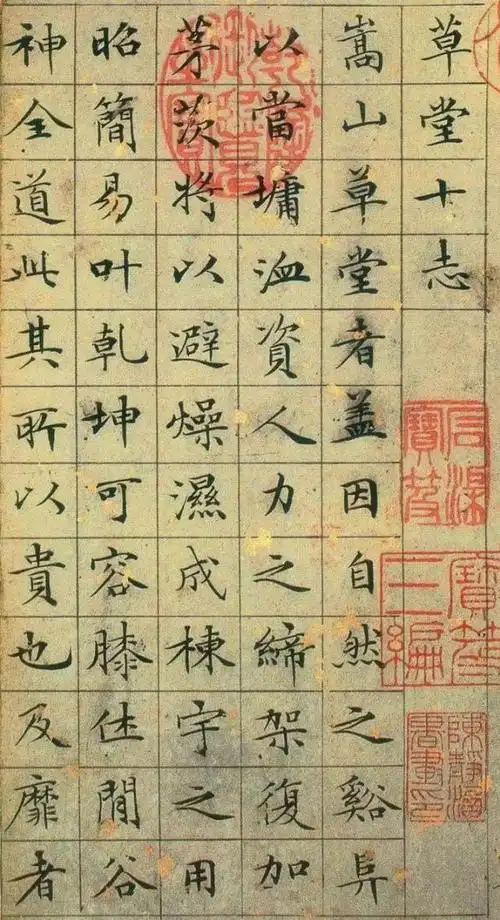 草堂十志
嵩山草堂者盖因自然之谿阜
以當墉洫資人力之締架復加
茅茨將以避燥濕成棟宇之用
昭簡易叶乾坤可容膝休閒谷
神全道此其所以貴也及靡者
石渠寶笈
寶笈三編